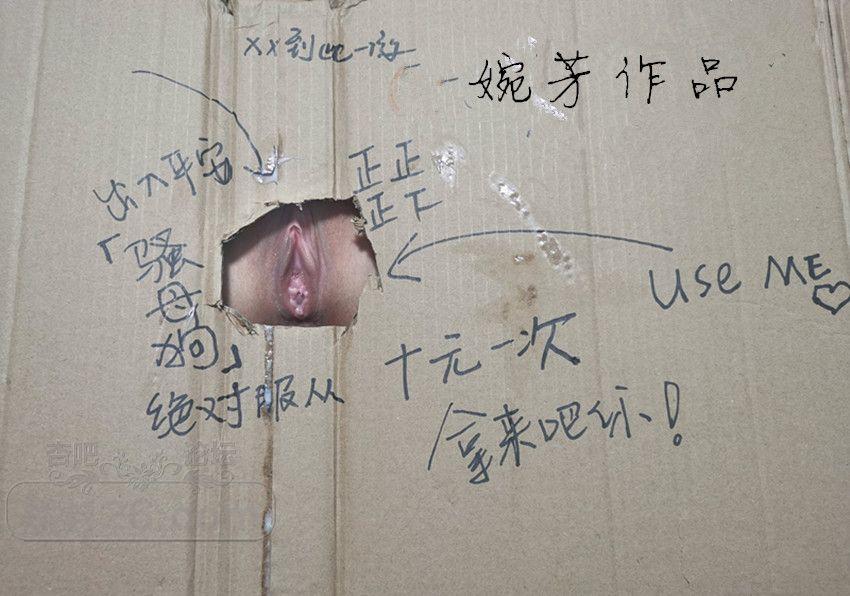 XX到此一游
婉芳作品
出入平安
正正
正下
「骚
母
狗」
USE ME
绝对服从
十元一次
拿来吧你!
杏吧 论坛